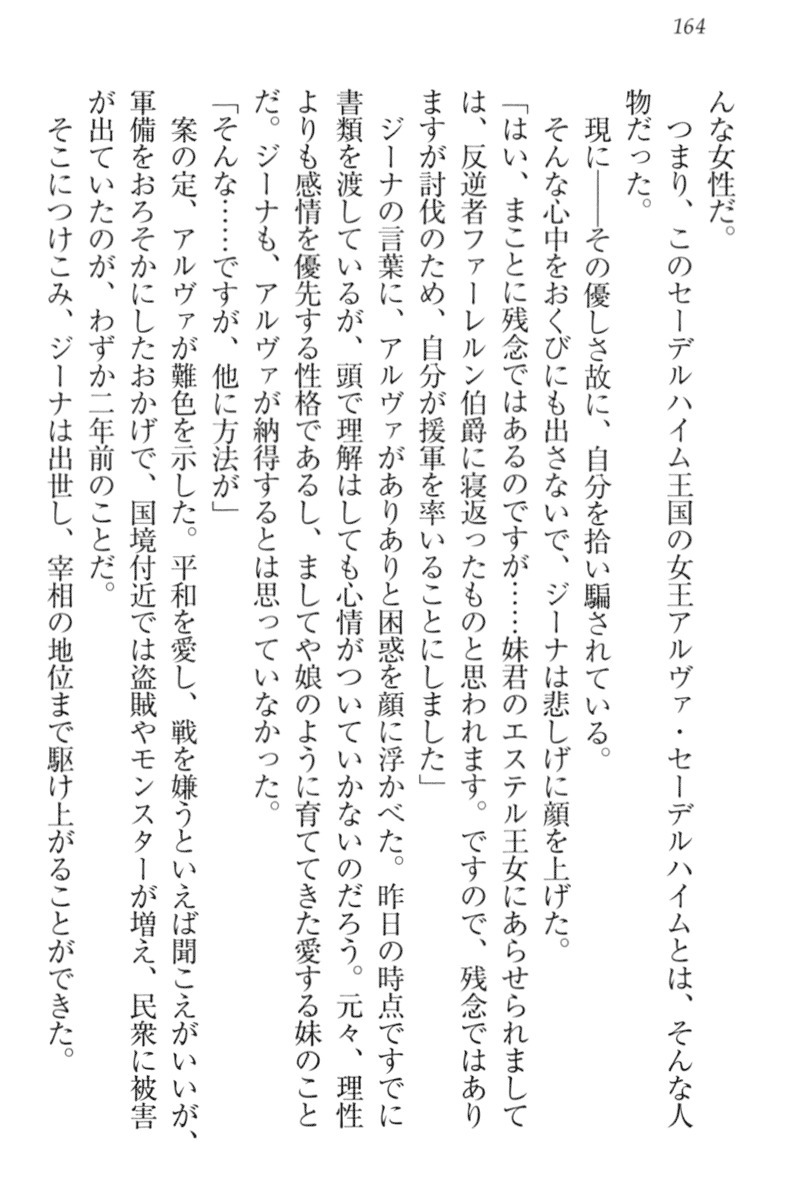 164
んな女性だ。
　つまり、このセーデルハイム王国の女王アルヴァ・セーデルハイムとは、そんな人
物だった。
　現に――その優しさ故に、自分を拾い騙されている。
　そんな心中をおくびにも出さないで、ジーナは悲しげに顔を上げた。
「はい、まことに残念ではあるのですが……妹君のエステル王女にあらせられまして
は、反逆者ファーレルン伯爵に寝返ったものと思われます。ですので、残念ではあり
ますが討伐のため、自分が援軍を率いることにしました」
　ジーナの言葉に、アルヴァがありありと困惑を顔に浮かべた。昨日の時点ですでに
書類を渡しているが、頭で理解はしても心情がついていかないのだろう。元々、理性
よりも感情を優先する性格であるし、ましてや娘のように育ててきた愛する妹のこと
だ。ジーナも、アルヴァが納得するとは思っていなかった。
「そんな……ですが、他に方法が」
　案の定、アルヴァが難色を示した。平和を愛し、戦を嫌うといえば聞こえがいいが、
軍備をおろそかにしたおかげで、国境付近では盗賊やモンスターが増え、民衆に被害
が出ていたのが、わずか二年前のことだ。
　そこにつけこみ、ジーナは出世し、宰相の地位まで駆け上がることができた。